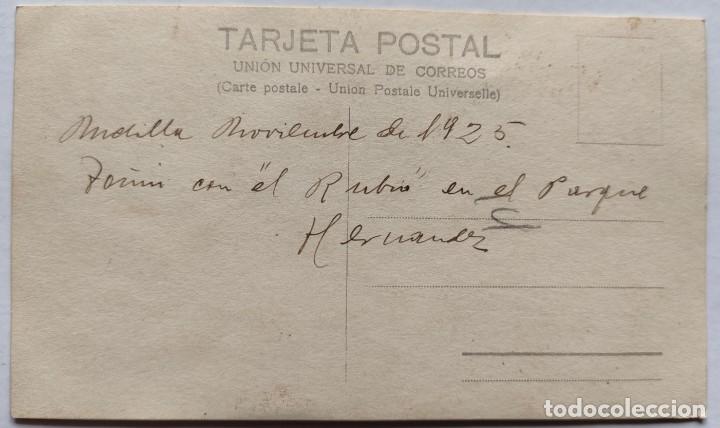 TARJETA POSTAL
UNIÓN UNIVERSAL DE CORREOS
(Carte postale - Union Postale Universelle)
Melilla Noviembre de 1925.
con "el Rubio" en el Parque
Hernandez
todocoleccion
todocoleccion.net